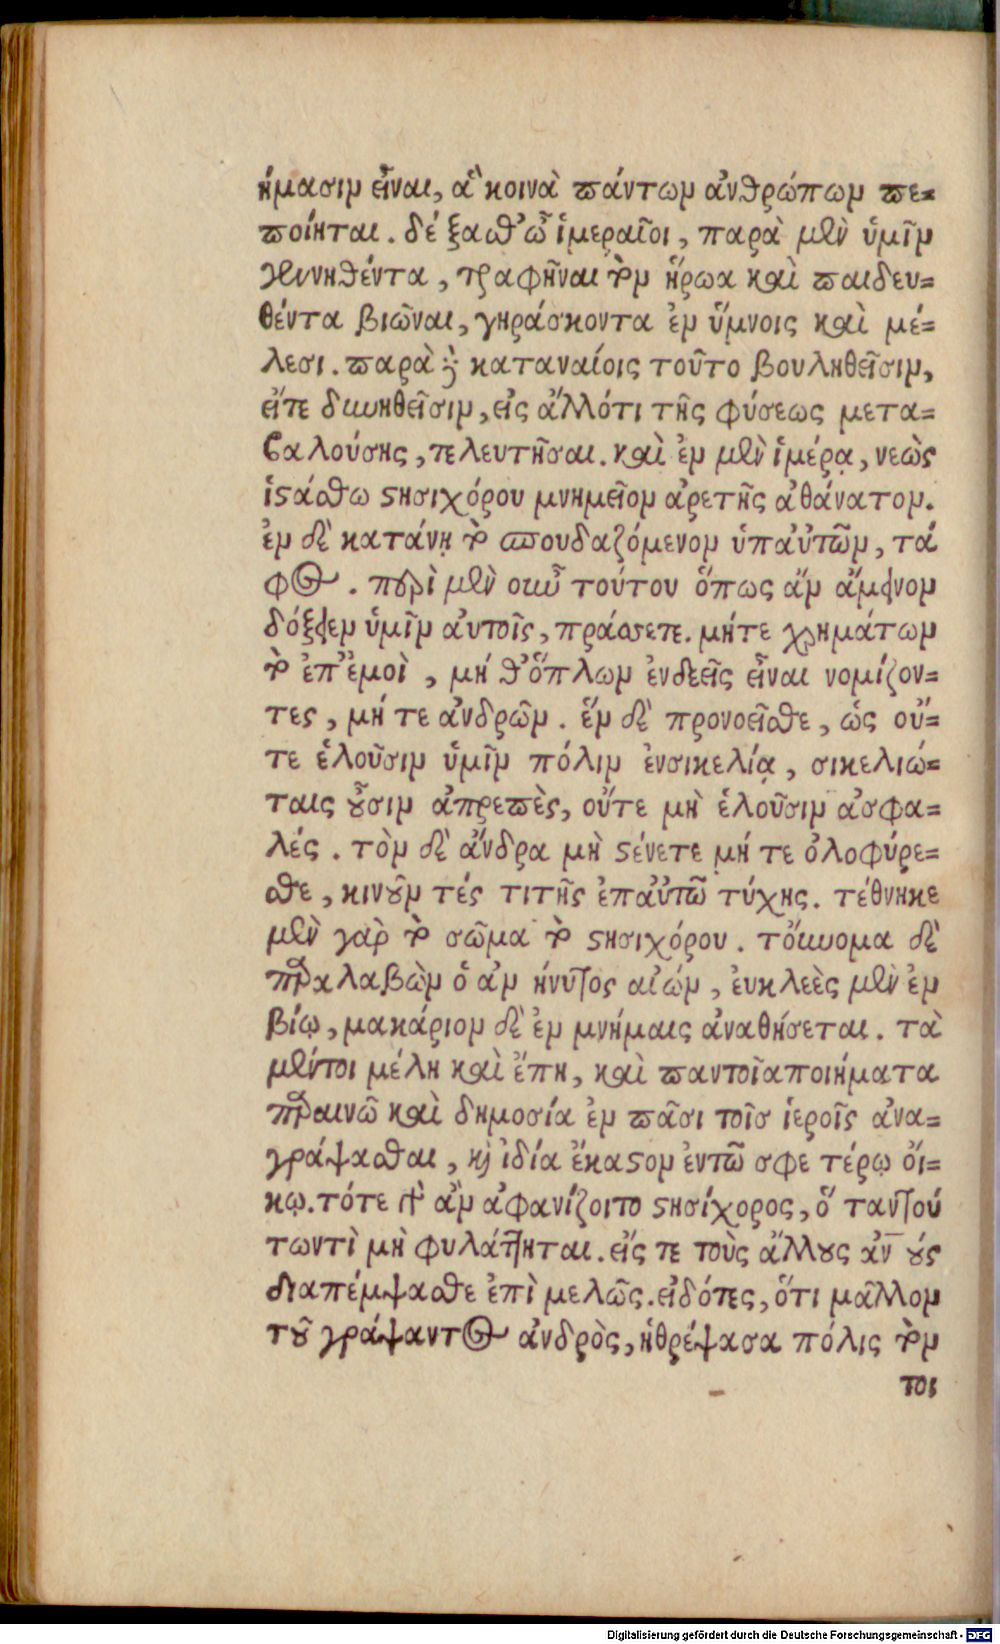 ήμασιν εἶναι, ἃ κοινὰ πάντων ἀνθρώπων πε-
ποίηται. δέξασθ' ὦ ἱμεραῖοι, παρὰ μὲν ὑμῖν
γεννηθέντα, τραφῆναι τὸν ἥρωα καὶ παιδευ-
θέντα βιῶναι, γηράσκοντα ἐν ὕμνοις καὶ μέ-
λεσι. παρὰ δὲ καταναίοις τοῦτο βουληθεῖσιν,
εἴτε δυνηθεῖσιν, εἰς ἄλλότι τῆς φύσεως μετα-
βαλούσης, τελευτῆσαι. καὶ ἐν μὲν ἱμέρᾳ, νεὼς
ἱστάσθω στησιχόρου μνημεῖον ἀρετῆς ἀθάνατον.
ἐν δὲ κατάνῃ τὸ σπουδαζόμενον ὑπ' αὐτῶν, τά
φος. περὶ μὲν οὖν τούτου ὅπως ἄν ἄμεινον
δόξειεν ὑμῖν αὐτοῖς, πράσσετε. μήτε χρημάτων
τὸ ἐπ' ἐμοὶ, μή θ' ὅπλων ἐνδεεῖς εἶναι νομίζον-
τες, μή τε ἀνδρῶν. ἕν δὲ προνοεῖσθε, ὡς οὔ-
τε ἑλοῦσιν ὑμῖν πόλιν ἐνσικελίᾳ, σικελιώ-
ταις οὖσιν ἀπρεπὲς, οὔτε μὴ ἑλοῦσιν ἀσφα-
λές. τὸν δὲ ἄνδρα μὴ στένετε μή τε ὀλοφύρε-
σθε, κινοῦν τές τι τῆς ἐπ' αὐτῷ τύχης. τέθνηκε
μὲν γὰρ τὸ σῶμα τὸ στησιχόρου. τοὔνομα δὲ
παραλαβὼν ὁ ἀν ήνυτος αἰών, ἐυκλεὲς μὲν ἐν
βίῳ, μακάριον δὲ ἐν μνήμαις ἀναθήσεται. τὰ
μέντοι μέλη καὶ ἔπη, καὶ παντοῖα ποιήματα
παραινῶ καὶ δημοσία ἐν πᾶσι τοῖσ ἱεροῖς ἀνα-
γράψασθαι, κὶ ἰδία ἕκαστον ἐντῷ σφετέρῳ ὄι-
κῳ. τότε γὰρ ἂν ἀφανίζοιτο στησίχορος, ὅταν τού
των τὶ μὴ φυλάττηται. εἴς τε τοὺς ἄλλους ἀνους
διαπέμψασθε ἐπὶ μελῶς. εἰδότες, ὅτι μᾶλλον
τοῦ γράψαντος ἀνδρὸς, ἡθρέψασα πόλις τὸν
τοι
Digitalisierung gefördert durch die Deutsche Forschungsgemeinschaft - DFG